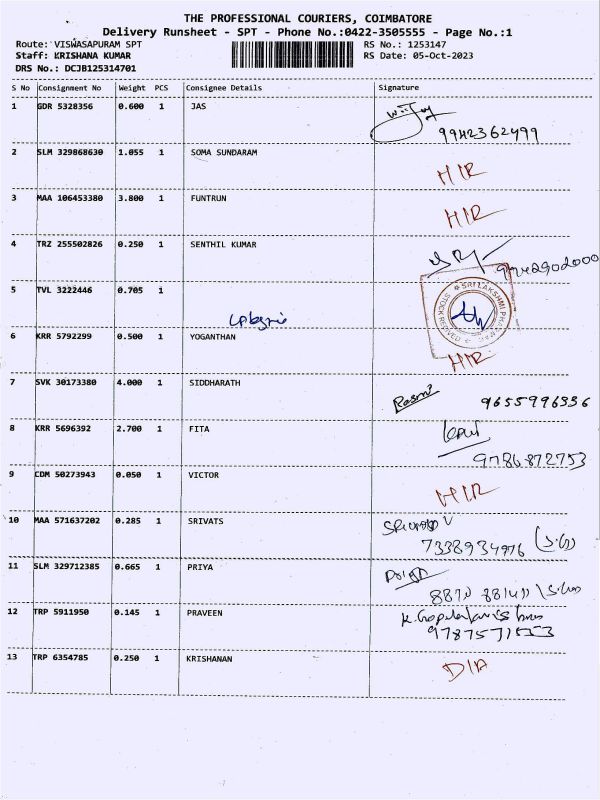 THE PROFESSIONAL COURIERS, COIMBATORE
Delivery Runsheet - SPT - Phone No.:0422-3505555 - Page No.:1
Route: VISWASAPURAM SPT RS No.: 1253147
Staff: KRISHANA KUMAR RS Date: 05-Oct-2023
DRS No.: DCJB125314701
S No Consignment No Weight PCS Consignee Details Signature
1 GDR 5328356 0.600 1 JAS
9942362499
2 SLM 329868630 1.055 1 SOMA SUNDARAM HIR
3 MAA 106453380 3.800 1 FUNTRUN HIR
4 TRZ 255502826 0.250 1 SENTHIL KUMAR
5 TVL 3222446 0.705 1 SRI LAKSHMI STOCK
6 KRR 5792299 0.500 1 YOGANTHAN HIR
7 SVK 30173380 4.000 1 SIDDHARATH 9655996336
8 KRR 5696392 2.700 1 FITA
9786872753
9 CDM 50273943 0.050 1 VICTOR HIR
10 MAA 571637202 0.285 1 SRIVATS
7338934976
11 SLM 329712385 0.665 1 PRIYA
12 TRP 5911950 0.145 1 PRAVEEN
13 TRP 6354785 0.250 1 KRISHANAN D/A